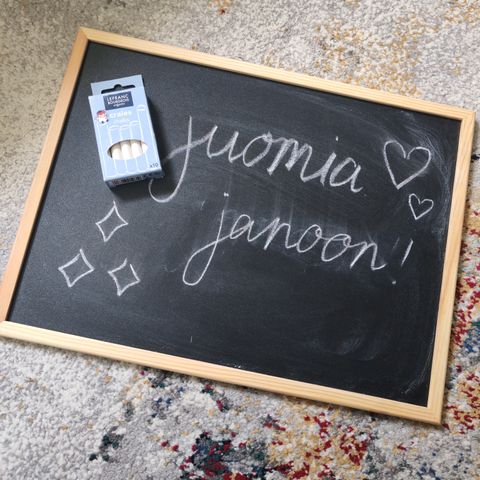 LEFRANC
BOURGEOIS
craies
x10
juomia
janoon!